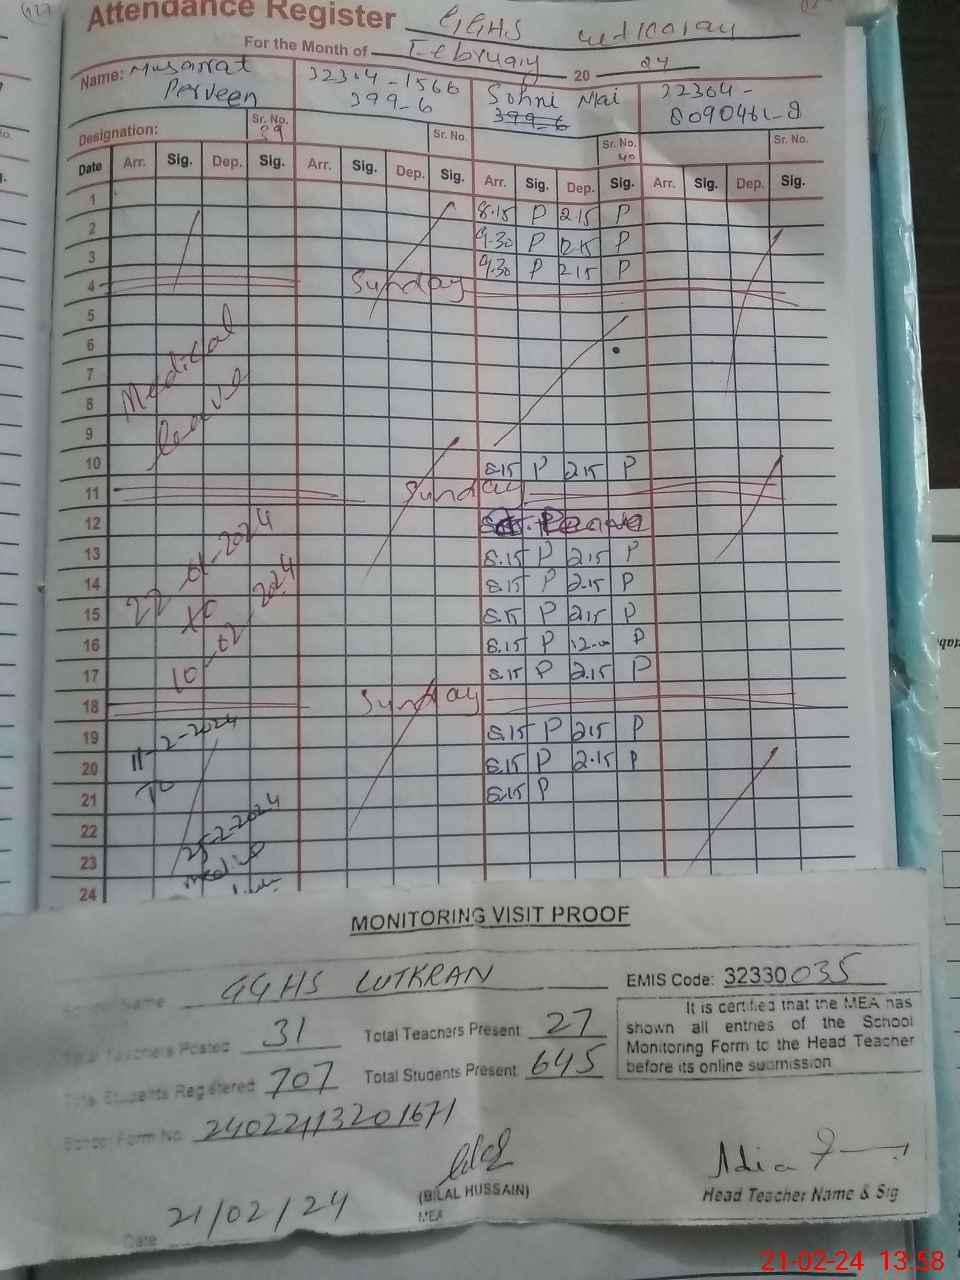 Attendance Register GGHS
For the Month of February 20 24
Name: Musarrat Perveen 32304-1566 399-6 Sohni Mai 399-6 32304- 8090461-8
Designation: Sr. No. 39 Sr. No. Sr. No. 40 Sr. No.
Date Arr. Sig. Dep. Sig. Arr. Sig. Dep. Sig. Arr. Sig. Dep. Sig. Arr. Sig. Dep. Sig.
1 8.15 P 2.15 P
2 9.30 P 2.15 P
3 9.30 P 2.15 P
4 Sunday
5
6
7 Medical
8 leave
9
10 8.15 P 2.15 P
11 Sunday
12
13 22-01-2024 8.15 P 2.15 P
14 to 8.15 P 2.15 P
15 10-02-2024 8.15 P 2.15 P
16 8.15 P 12.00 P
17 8.15 P 2.15 P
18 Sunday
19 11-2-2024 8.15 P 2.15 P
20 To 8.15 P 2.15 P
21 8.15 P
22 25-2-2024
23
24
MONITORING VISIT PROOF
School Name GGHS LUTKRAN EMIS Code: 32330035
Total Teachers Posted 31 Total Teachers Present 27
Total Students Registered 707 Total Students Present 645
It is certified that the MEA has
shown all entries of the School
Monitoring Form to the Head Teacher
before its online submission
School Form No.
(BILAL HUSSAIN)
MEA
Head Teacher Name & Sig
Date 21/02/24
21-02-24 13.58